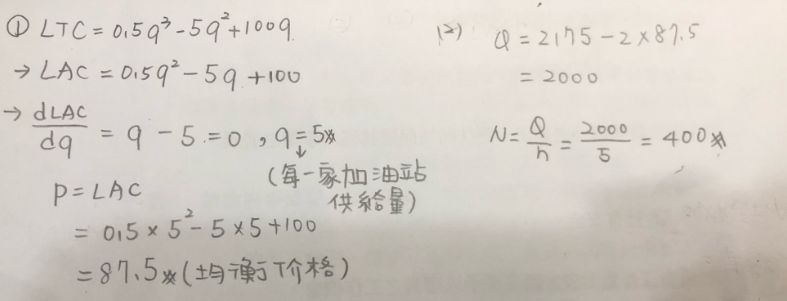 ① LTC = 0.5q³ - 5q² + 100q
→ LAC = 0.5q² - 5q + 100
→ dLAC/dq = q - 5 = 0, q = 5※
↓
(每一家加油站
供給量)
P = LAC
= 0.5 × 5² - 5 × 5 + 100
= 87.5※ (均衡价格)
(2) Q = 2175 - 2 × 87.5
= 2000
N = Q/n = 2000/5 = 400※